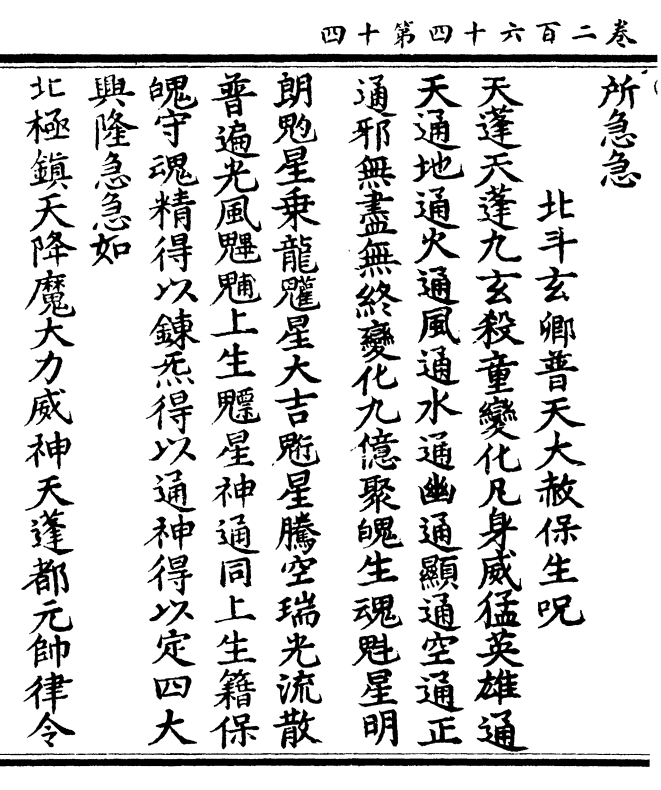 卷二百六十四第十四
所急急
北斗玄卿普天大赦保生呪
天蓬天蓬九玄殺童變化凡身威猛英雄通
天通地通火通風通水通幽通顯通空通正
通邪無盡無終變化九億聚魄生魂魁星明
朗星乘龍星大吉星騰空瑞光流散
普遍光風魓上生魒星神通同上生籍保
魄守魂精得以鍊炁得以通神得以定四大
興隆急急如
北極鎮天降魔大力威神天蓬都元帥律令